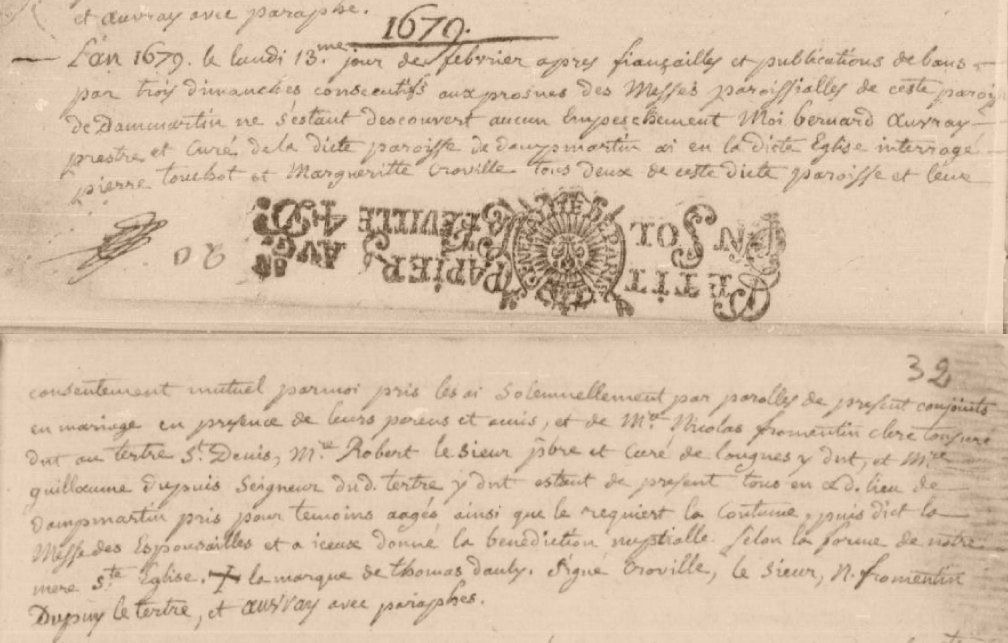 et auvray avec paraphe.
1679.
L'an 1679. le lundi 13.me jour de febvrier apres fiançailles et publications de bans
par trois dimanches consecutifs aux prosnes des Messes paroissialles de ceste parois
de Dammartin ne s'estant descouvert aucun Empeschement Moi bernard auvray
prestre et Curé de la dicte paroisse de dampmartin ai en la dicte Eglise interrogé
pierre touchot et Margueritte Croville tous deux de ceste dicte paroisse et leur
PETIT PAPIER AVEC
UN SOL 4 D
GENERALITE DE PARIS
32
consentement mutuel par moi pris les ai Solemnellement par parolles de present conjoints
en mariage en presence de leurs parens et amis, et de M.re Nicolas fromentin clerc tonsuré
dnt au tertre S.t Denis, M.re Robert le sieur pbre et Curé de Longnes y dnt, et M.re
guillaume Dupuis Seigneur dud. tertre y dnt estant de present tous en ced. lieu de
dampmartin pris pour temoins aagés ainsi que le requiert la Coutume, puis dict la
Messe des Espousailles et a iceux donné la benediction nuptialle. Selon la forme de notre
mere S.te Eglise. + la marque de thomas dauly. Signé Croville, le Sieur, N. fromentin
Dupuy le tertre, et auvray avec paraphes.